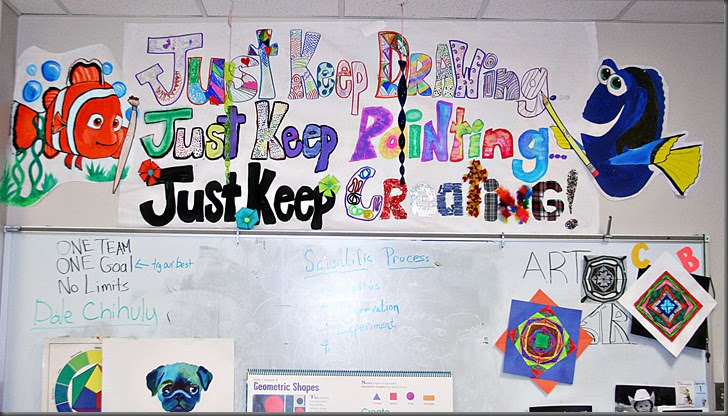 Just Keep Drawing...
Just Keep Painting...
Just Keep Creating!
ONE TEAM
ONE Goal ← try our best
No Limits
Dale Chihuly
Scientific Process
ART
C B
Geometric Shapes
Create